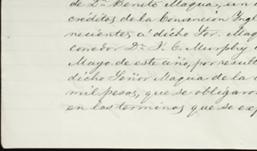 de Dn. Benito Magua, un
créditos de la Convención Ingl
necientes á dicho Sor. Mag
conedor Dn. J. C. Murphy
Mayo de este año, por result
dicho Señor Magua de la
mil pesos, que se obligaron
en los terminos que se ex